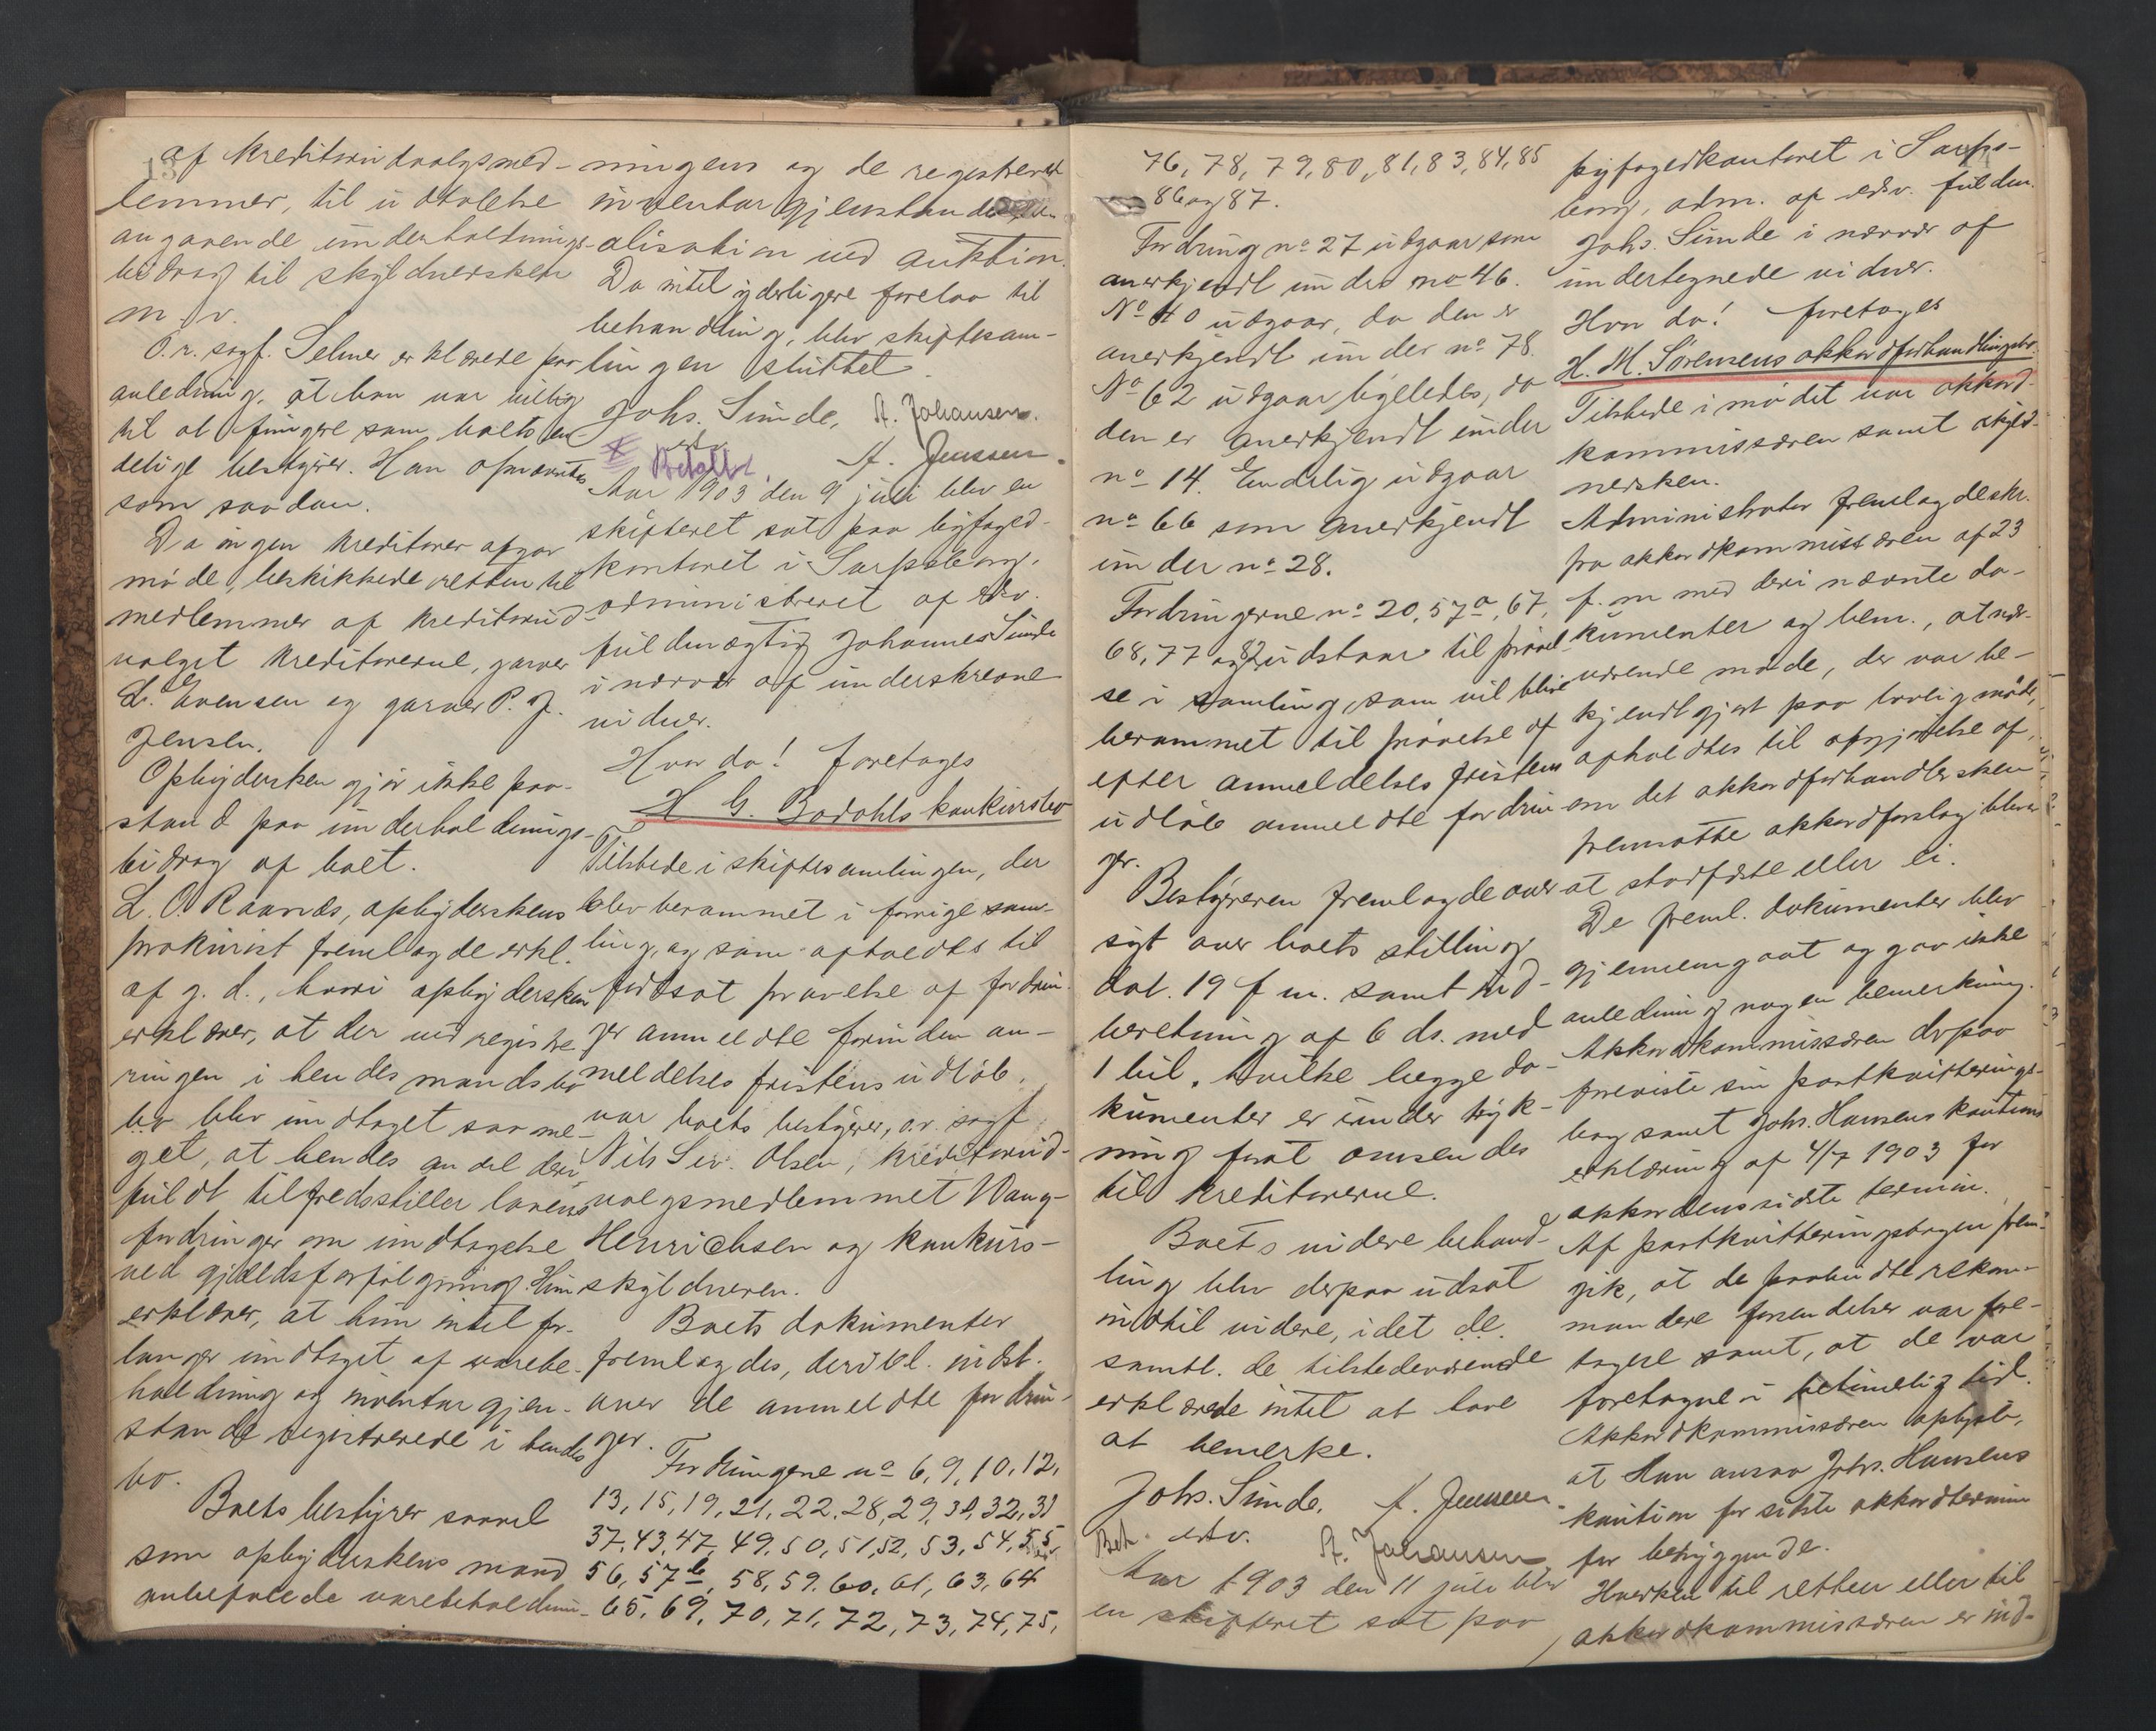 af kreditorudvalgsmed-
lemmer, til udtalelse
angaaende underholdnings-
bidrag til skyldnersken
m. v.
O. r. sagf. Selmer erklærede paa
anledning, at han var villig
til at fungere som boets en-
delige bestyrer. Han opnævntes
som saadan.
Da ingen kreditorer afgav
møde, beskikkede retten til
medlemmer af kreditorud-
valget kreditorerne, garver
L. Evensen og garver P. J.
Jensen.
Opbydersken gjør ikke paa-
stand paa underholdnings-
bidrag af boet.
L. O. Raanæs, opbyderskens
prokurist fremlagde erkl.
af g. d., hvori opbydersken
erklærer, at der ved registre-
ringen i hendes mands
bo blev undtaget saa me-
get, at hendes andel deri
fuldt tilfredsstiller lovens
fordringer om undtagelse
ved gjældsforfølgning. Hun
erklærer, at hun intet for-
langer undtaget af varebe-
holdning og inventargjen-
stande registrerede i hendes
bo.
Boets bestyrer saavel
som opbyderskens mand
anbefalede varebeholdnin-
ningens og de registrerede
inventargjenstandes re-
alisation ved auktion.
Da intet yderligere forelaa til
behandling, blev skiftesam-
lingen sluttet.
Johs. Sunde, A. Johansen.
edsv. A. Jenssen.
Betalt
Aar 1903 den 9 juli blev en
skifteret sat paa byfoged-
kontoret i Sarpsborg,
administreret af edsv.
fuldmægtig Johannes Sunde
i nærvær af underskrevne
vidner.
Hvor da! foretoges
H G. Bodahls konkursbo
Tilstede i skiftesamlingen, der
blev berammet i forrige sam-
ling, og som afholdtes til
fortsat prøvelse af fordrin-
ger anmeldte forinden an-
meldelsesfristens udløb,
var boets bestyrer, o.r. sagf.
Nils Siv. Olsen, kreditorud-
valgsmedlemmet Wang-
Henrichsen og konkurs-
skyldneren.
Boets dokumenter
fremlagdes, deribl. indst.
over de anmeldte fordrin-
ger.
Fordringerne no 6, 9, 10, 12,
13, 15, 19, 21, 22, 28, 29, 31, 32, 33
37, 43, 47, 49, 50, 51, 52, 53, 54, 55,
56, 57 b, 58, 59, 60, 61, 63, 64
65, 69, 70, 71, 72, 73, 74, 75,
76, 78, 79, 80, 81, 83, 84, 85
86 og 87.
Fordring no 27 udgaar som
anerkjendt under no 46.
No 40 udgaar, da den er
anerkjendt under no 78.
No 62 udgaar ligeledes, da
den er anerkjendt under
no 14. Endelig udgaar
no 66 som anerkjendt
under no 28.
Fordringerne no 20, 57 a, 67,
68, 77 og 82 udstaar til prøvel-
se i samling, som vil blive
berammet til prøvelse af
efter anmeldelsesfristens
udløb anmeldte fordrin-
ger.
Bestyreren fremlagde over-
sigt over boets stilling
dat. 19 f m. samt ind-
beretning af 6 ds. med
1 bil., hvilke begge do-
kumenter er under tryk-
ning forat omsendes
til kreditorerne.
Boets videre behand-
ling blev derpaa udsat
indtil videre, idet
samtl. de tilstedeværende
erklærede intet at have
at bemerke.
Johs. Sunde. A. Jenssen.
Bet. edsv. A. Johansen
Aar 1903 den 11 juli blev
en skifteret sat paa
byfogedkontoret i Sarps-
borg, adm. af edsv. fuldm.
Johs. Sunde i nærvær af
undertegnede vidner.
Hvor da! foretoges
H. M. Sørensens akkordforhandlingsbo.
Tilstede i mødet var akkord-
kommissæren samt skyld-
nersken.
Administrator fremlagde skr.
fra akkordkommissæren af 23
f. m med deri nævnte do-
kumenter og bem., at nær-
værende møde, der var be-
kjendtgjort paa lovlig maade,
afholdtes til afgjørelse af,
om det akkordforhandlersken
fremsatte akkordforslag bliver
at stadfæste eller ei.
De freml. dokumenter blev
gjennemgaat og gav ikke
anledning nogen bemerkning.
Akkordkommissæren derpaa
foreviste sin postkvitterings-
bog samt Johs. Hansens kautions
erklæring af 4/7 1903 for
akkordens sidste termin.
Af postkvitteringsbogen frem-
gik, at de paabudte rekom-
mandere forsendelser var fore-
tagere samt, at de var
foretagne i betimelig tid.
Akkordkommissæren oplyste,
at Han ansaa Johs. Hansens
kaution for sidste akkordtermin
for betryggende.
Hverken til retten eller til
akkordkommissæren er ind-